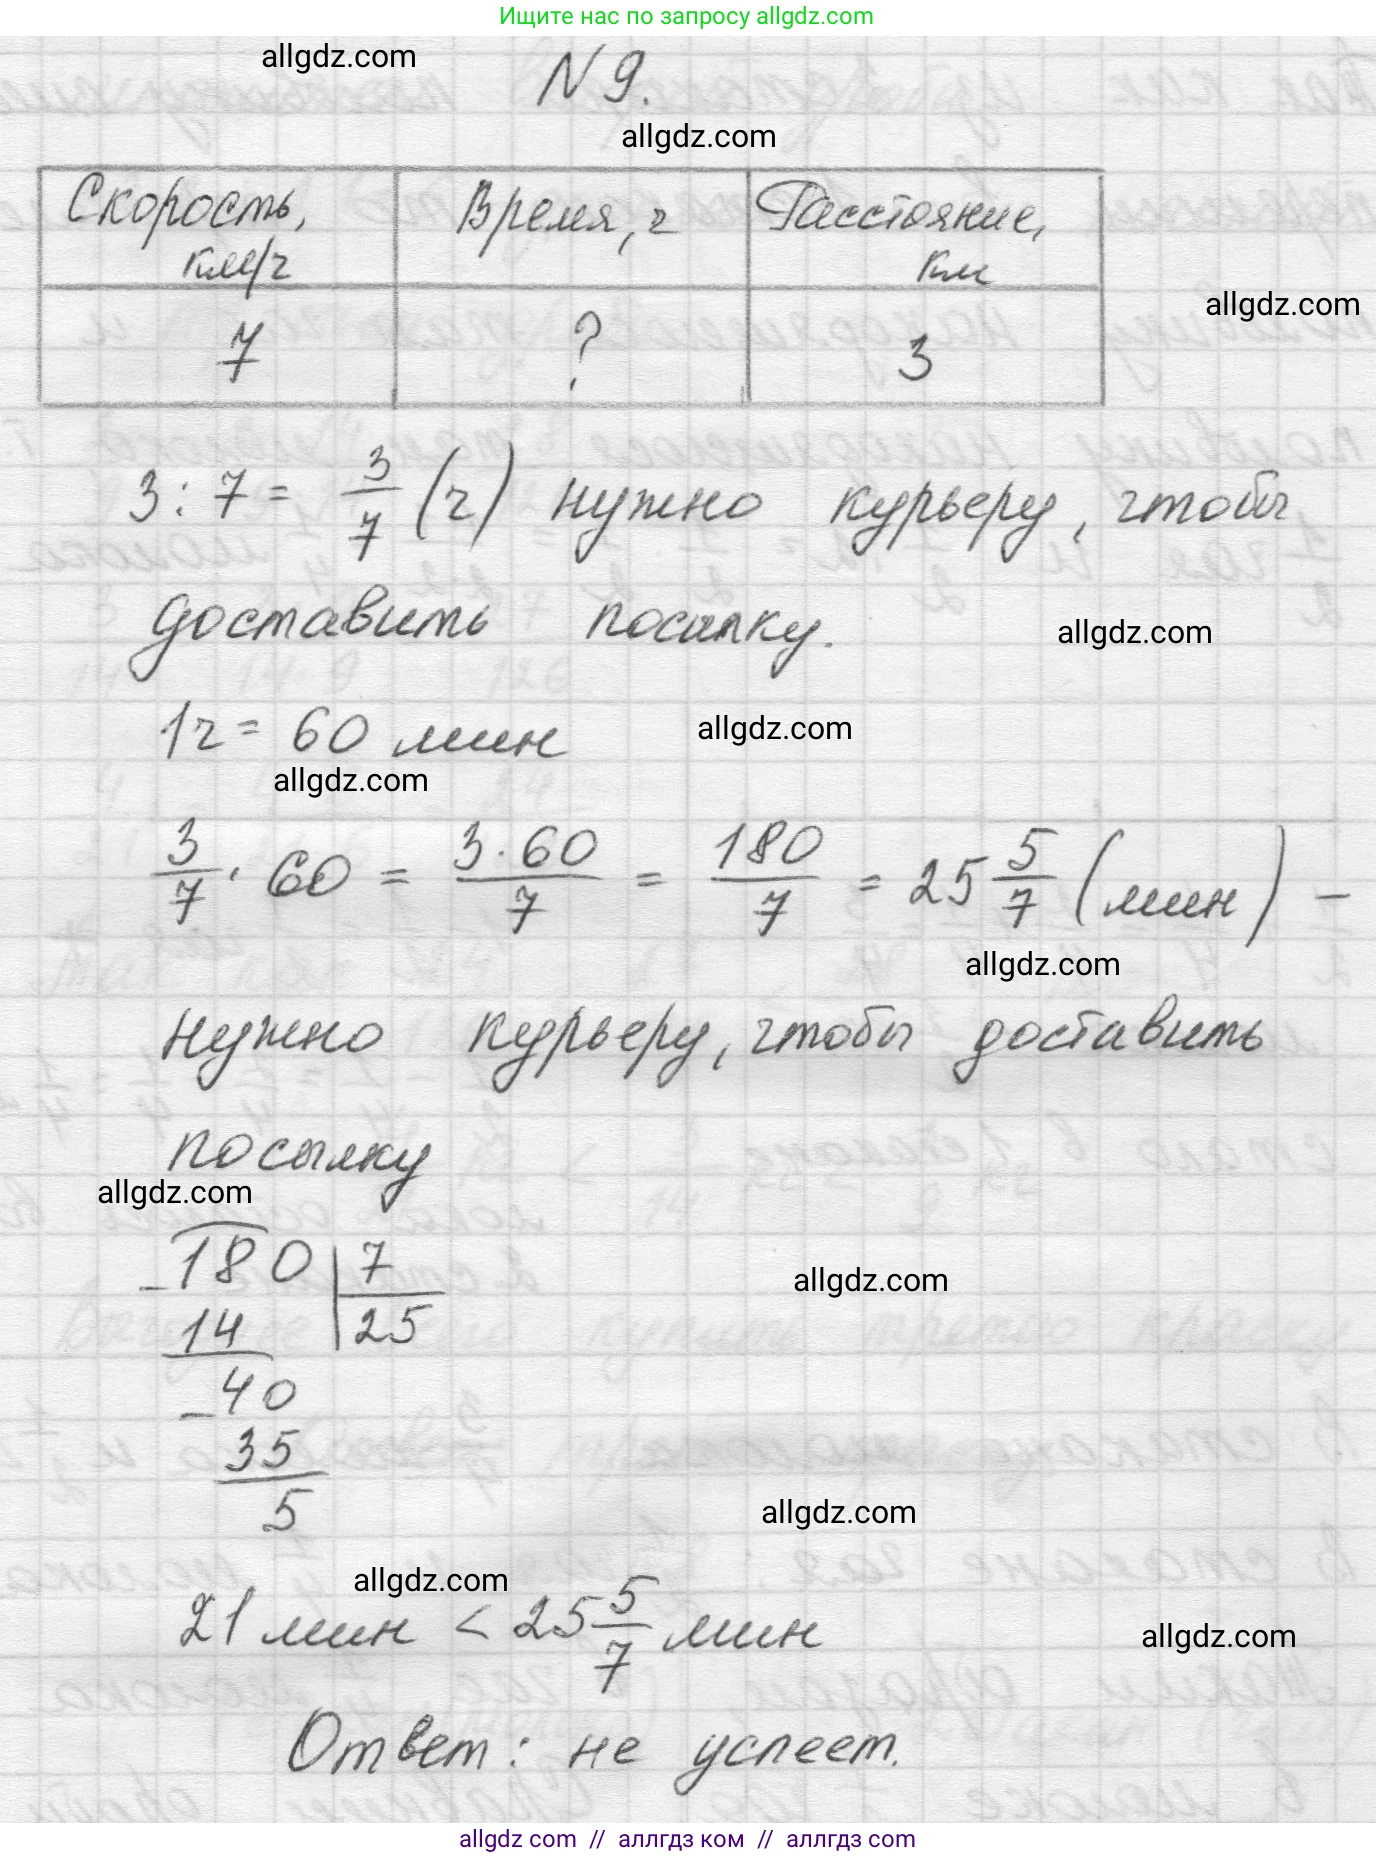 Ищите нас по запросу allgdz.com
allgdz.com
N 9.
allgdz.com
Скорость, км/ч Время, ч Расстояние, км
allgdz.com
7 ? 3
3 : 7 = 3/7 (ч) нужно курьеру, чтобы
доставить посылку.
allgdz.com
1 ч = 60 мин
allgdz.com
allgdz.com
3/7 · 60 = 3·60/7 = 180/7 = 25 5/7 (мин) –
allgdz.com
нужно курьеру, чтобы доставить
посылку
allgdz.com
180 | 7
allgdz.com
14 | 25
40
35
5
allgdz.com
allgdz.com
21 мин < 25 5/7 мин
allgdz.com
Ответ: не успеет.
allgdz com // аллгдз ком // аллгдз com